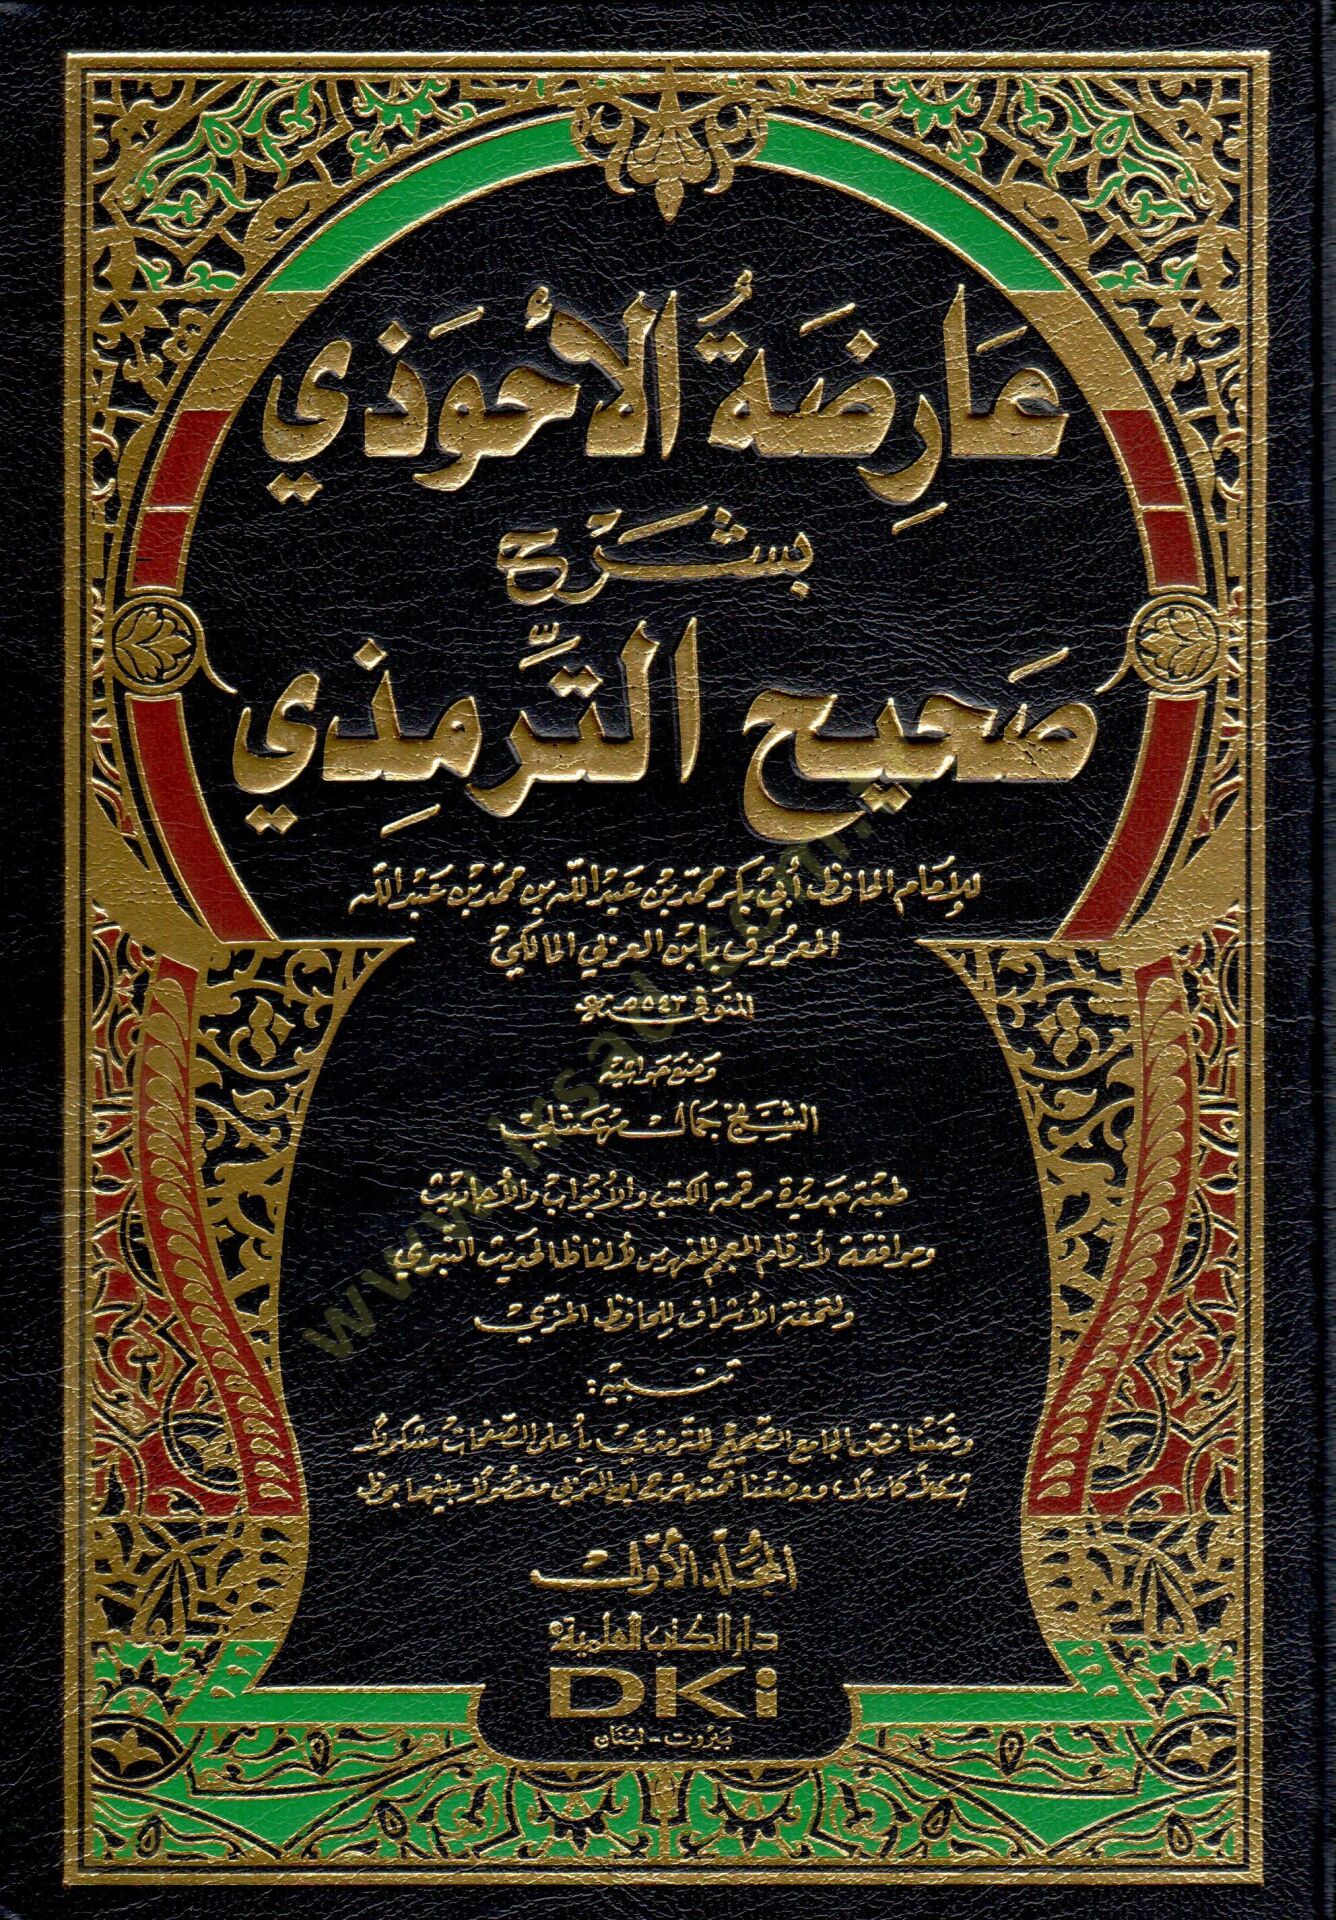 عَارِضَةُ الأحْوَذي
بشرح
صَحيح التِّرمِذي
للإمَام الحافظ أبي بكر محمّد بن عبد الله بن محمد بن عبد الله
المعروف بابن العربي المالكي
المتوفى ٥٤٣ هـ
وضع حواشيه
الشيخ جمال مرعشلي
طبعة جديدة مرقمة الكتب والأبواب والأحاديث
وموافقة لأرقام المعجم المفهرس لألفاظ الحديث النبوي
ولتحفة الأشراف للحافظ المزي
تنبيه:
وضعنا نص الجامع الصحيح للترمذي بأعلى الصفحات مشكولاً
شكلاً كاملاً، ووضعنا تحته شرح ابن العربي مفصولاً بينهما بخط
المجلد الأول
دار الكتب العلمية
DKi
بيروت - لبنان